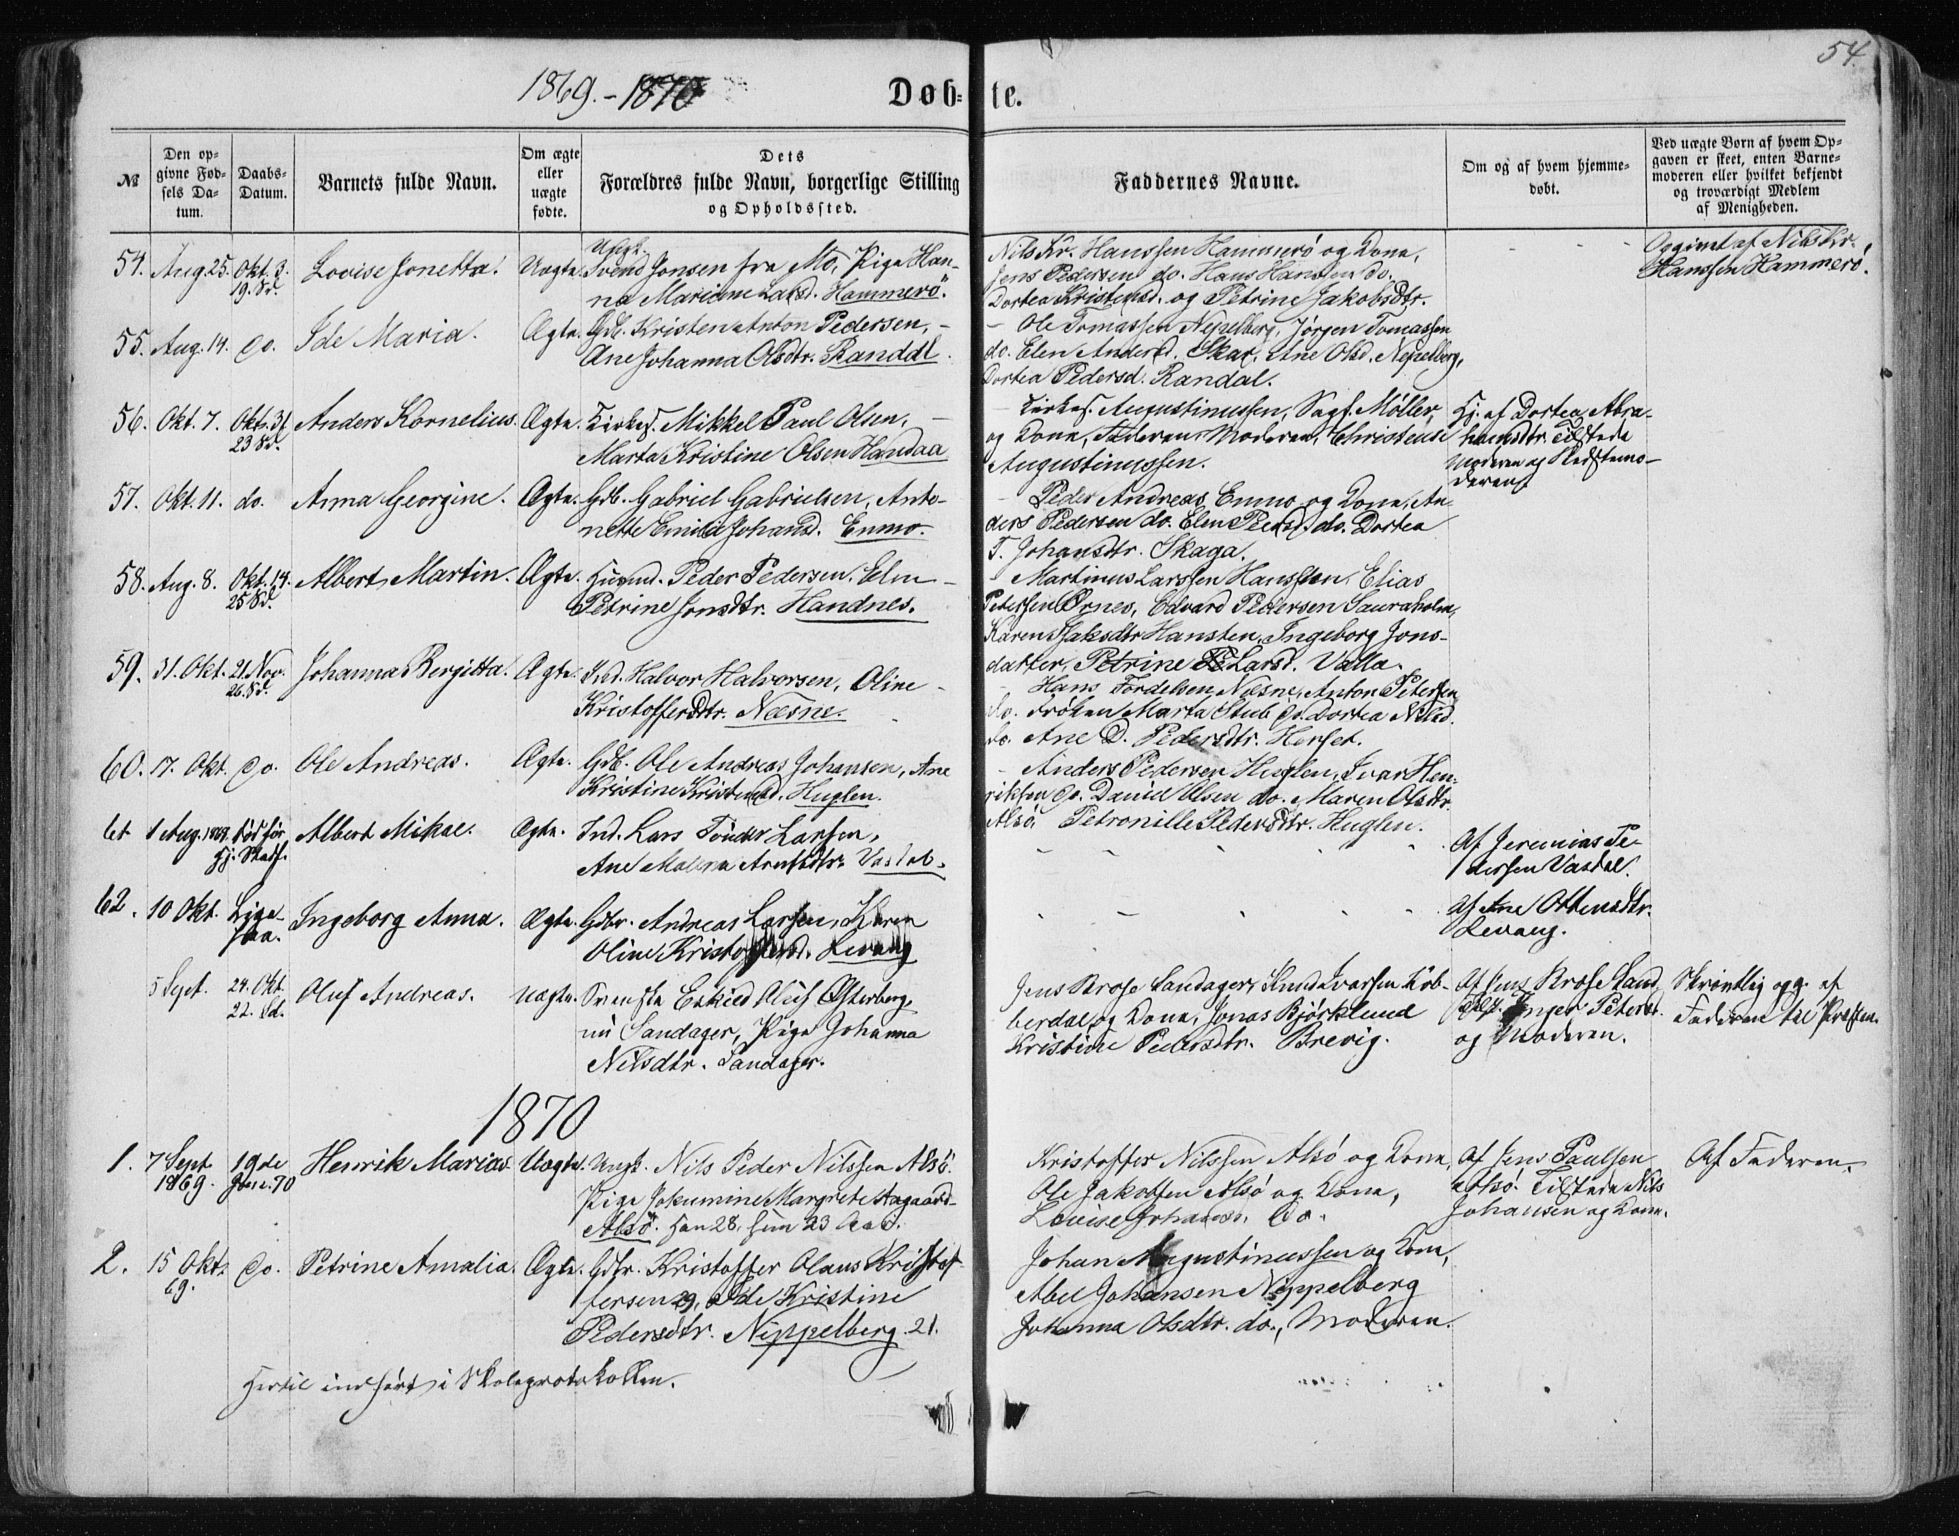 54.
1869.-1870
Døb- te.
№
Den opgivne Fødsels Datum.
Daabs-Datum.
Barnets fulde Navn.
Om ægte eller uægte fødte.
Dets Forældres fulde Navn, borgerlige Stilling og Opholdssted.
Faddernes Navne.
Om og af hvem hjemmedøbt.
Ved uægte Børn af hvem Opgaven er skeet, enten Barnemoderen eller hvilket bekjendt og troværdigt Medlem af Menigheden.
54. Aug. 25. Okt. 3. 19. Sd. Lovise Jonetta. Uægte. Ungk. Svend Jonsen fra Mo, Pige Han-
na Mariane Larsd. Hammerö.
Nils Kr. Hanssen Hammerö og Kona,
Jens Pedersen do. Hans Hansen do.
Dortea Kristensd. og Petrine Jakobsdtr.
Opgivet af Nils Kr.
Hanssen Hammerö.
55. Aug. 14. do. Ide Maria. Ægte. Gdb. Kristen Anton Pedersen,
Ane Johanna Olsdtr. Randal.
Ole Tomassen Nepelberg, Jørgen Tomassen
do. Elen Andersd. Skar. Ane Olsd. Nepelberg,
Dortea Pedersd. Randal.
56. Okt. 7. Okt. 31 23 Sd. Anders Kornelius. Ægte. Kirkes. Mikkel Paul Olsen,
Marta Kristine Olsen Handaa
Kirkes. Augustinussen, Sagf. Møller,
og Kona, Faderen, Moderen, Christense
Augustinussen.
Hj. af Dortea Abra-
hamsdtr. Tilstede
Moderen og Stedfemo-
deren
57. Okt. 11. do. Anna Georgine. Ægte. Gdb. Gabriel Gabrielsen, Anto-
nette Emilie Johansd. Enmo.
Peder Andreas Enmo og Kona, An-
ders Pedersen do. Elen Pedersd. do. Dortea
T. Johansdtr. Skaga.
58. Aug. 8. Okt. 14. 25 Sd. Albert Martin. Ægte. Husmd. Peder Pedersen, Elen
Petrine Jonsdtr. Handnes.
Martinus Larssen Hanssten, Elias
Petersen Ørnes, Edvard Pedersen Sauraholm,
Karen Isaksdtr Hansten, Ingeborg Jons-
datter, Petrine Larsd. Valla.
59. 31. Okt. 21. Nov. 26. Sd. Johanna Bergitta. Ægte. Ind. Halvor Halvorsen, Oline
Kristofferdtr. Næsne.
Hans Tordelsen Næsne, Anton Petersen
do. Frøken Marta Stub do. Dortea Nilsd.
do. Ane D. Pedersdtr. Horset.
60. 17. Okt. do. Ole Andreas. Ægte. Gdb. Ole Andreas Johansen, Ane
Kristine Kristensd. Huglen.
Anders Pedersen Huglen, Ivar Hen-
riksen do. David Olsen do. Maren Olsdtr.
Alsö, Petronille Pedersdtr. Huglen.
61 1 Aug. 1869. Død før Hj. Stadf. Albert Mikae. Ægte. Ind. Lars Tönder Larsen,
Ane Malena Arntsdtr. Vasdal.
Af Jeremias Pe-
dersen Vasdal.
62. 10 Okt. Lige-
saa. Ingeborg Anna. Ægte. Gdbr. Andreas Larsen, Karen
Oline Kristoffersd. Levang
Af Ane Ottensdtr.
Levang.
5 Sept. 24. Okt. 22. Sd. Oluf Andreas. Uægte. Svenske Eskild Oluf Østerberg,
nu Sandager, Pige Johanna
Nilsdtr. Sandager.
Jens Brose Sandager, Knud Ivarsen Kob-
berdal og Kona, Jonas Björklund
Kristine Pedersdtr. Brevig.
Af Jens Brose Sand
Inger Petersd.
og Moderen.
Skriftlig opg. af
Faderen til Præsten.
1870
1. 7 Sept. 1869. 19de Jan. 70 Henrik Marias. Uægte. Ungk. Nils Peder Nilssen Alsö.
Pige Jokumine Margrete Aagaard
Alsö. Han 28, hun 23 Aar.
Kristoffer Nilssen Alsö og Kona,
Ole Jakobsen Alsö og Kona,
Lovise Johansd. do.
Af Jens Paulsen
Alsö. Tilstede Nils
Johansen og Kona.
Af Faderen.
2. 15 Okt. 69. do. Petrine Amalia. Ægte. Gdbr. Kristoffer Olaus Kristof-
fersen 29, Ide Kristine
Pedersdtr. Nippelberg. 21.
Johan Augustinussen og Kona,
Abel Johansen Nippelberg
Johanna Olsdtr. do., Moderen.
Hertil indført i Skoleprotokollen.